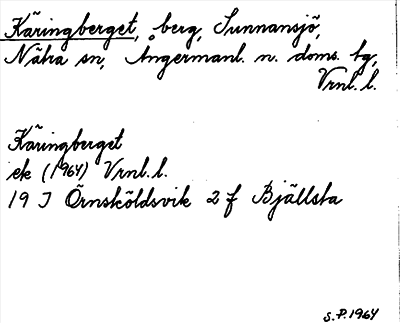 Käringberget, berg, Sunnansjö,
Nätra sn, Ångermanl. n. doms. hg,
Vrnl. l.
Käringberget
ek (1964) Vrnl. l.
19 J Örnsköldsvik 2 f Bjällsta
S.P. 1964